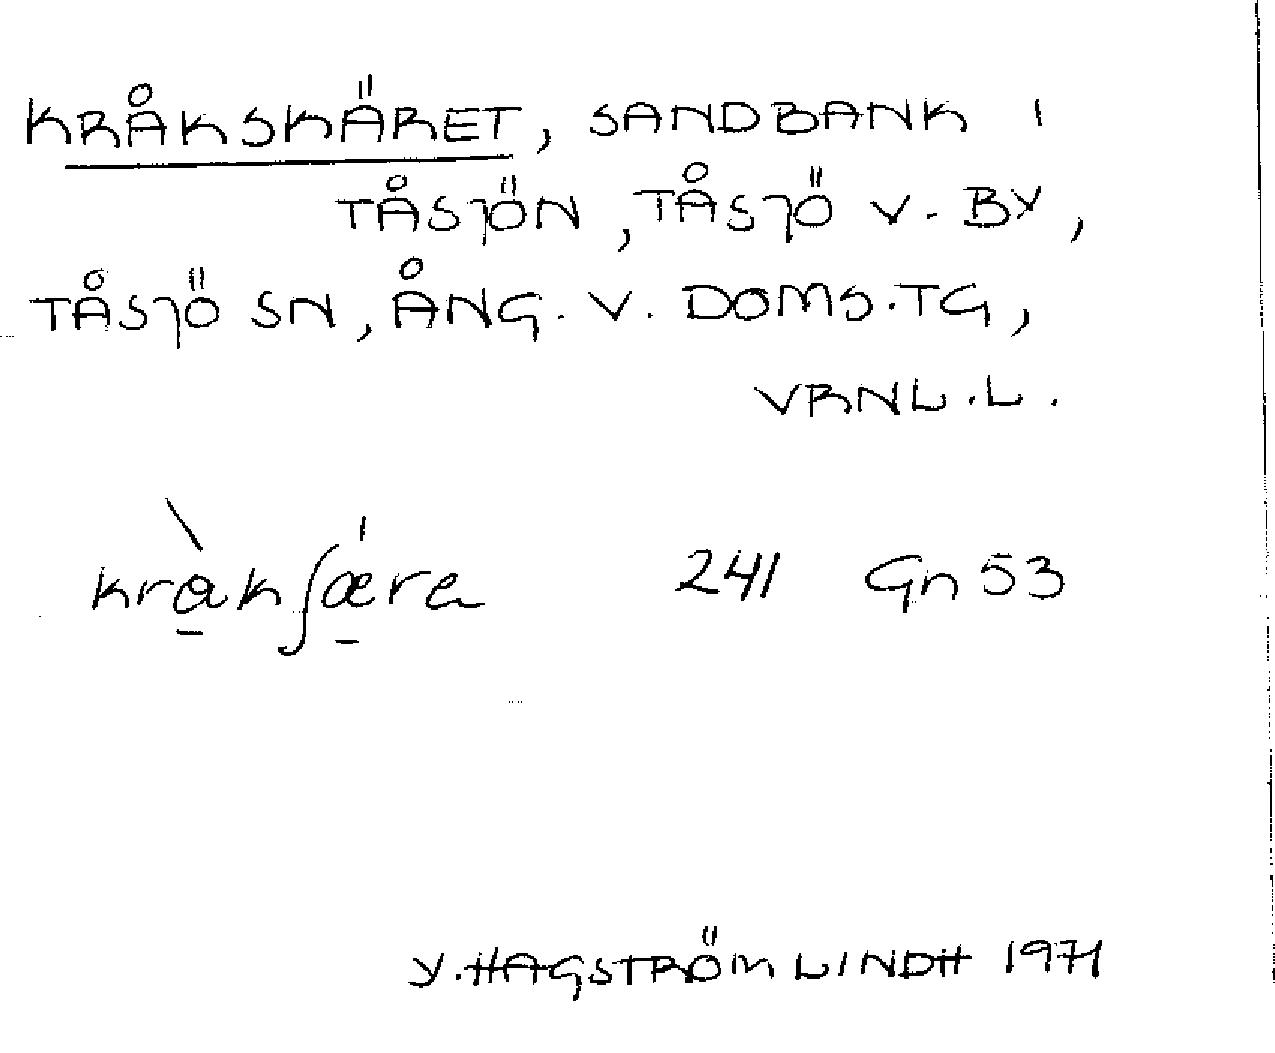 KRÅKSKÄRET, SANDBANK I
TÅSJÖN, TÅSJÖ V. BY,
TÅSJÖ SN, ÅNG. V. DOMS.TG,
VRNL.L.
kràkʃæ̍ra 241 Gn 53
Y. HAGSTRÖM LINDH 1971